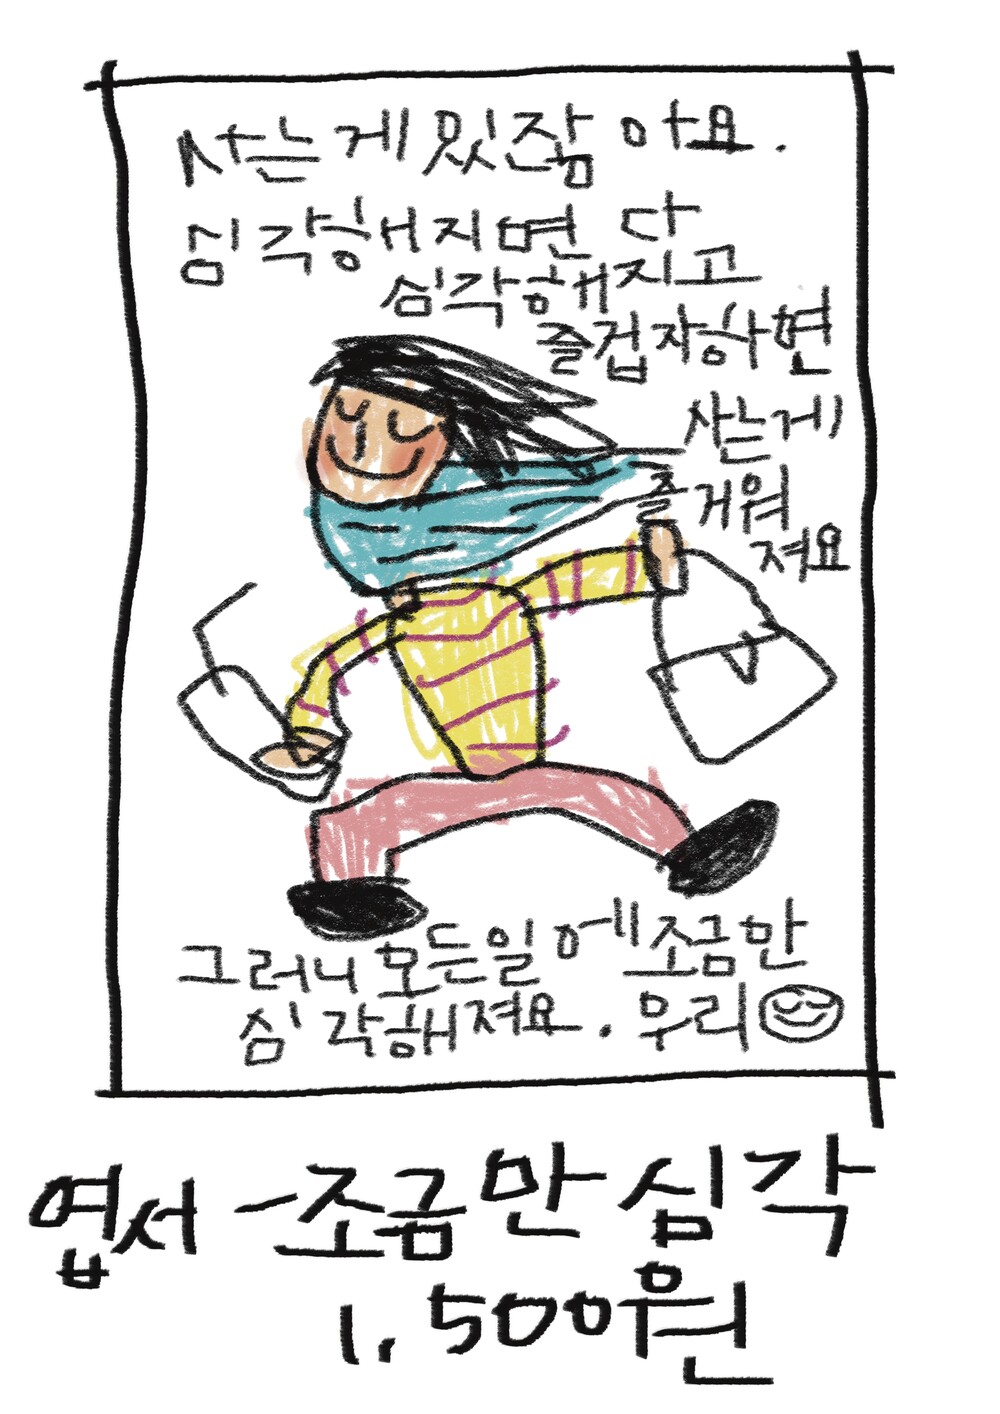 사는게 있잖아요.
심각해지면 다
심각해지고
즐겁자하면
사는게
즐거워
져요
그러니 모든일에 조금만
심각해져요. 우리
엽서 - 조금만 심각
1,500원